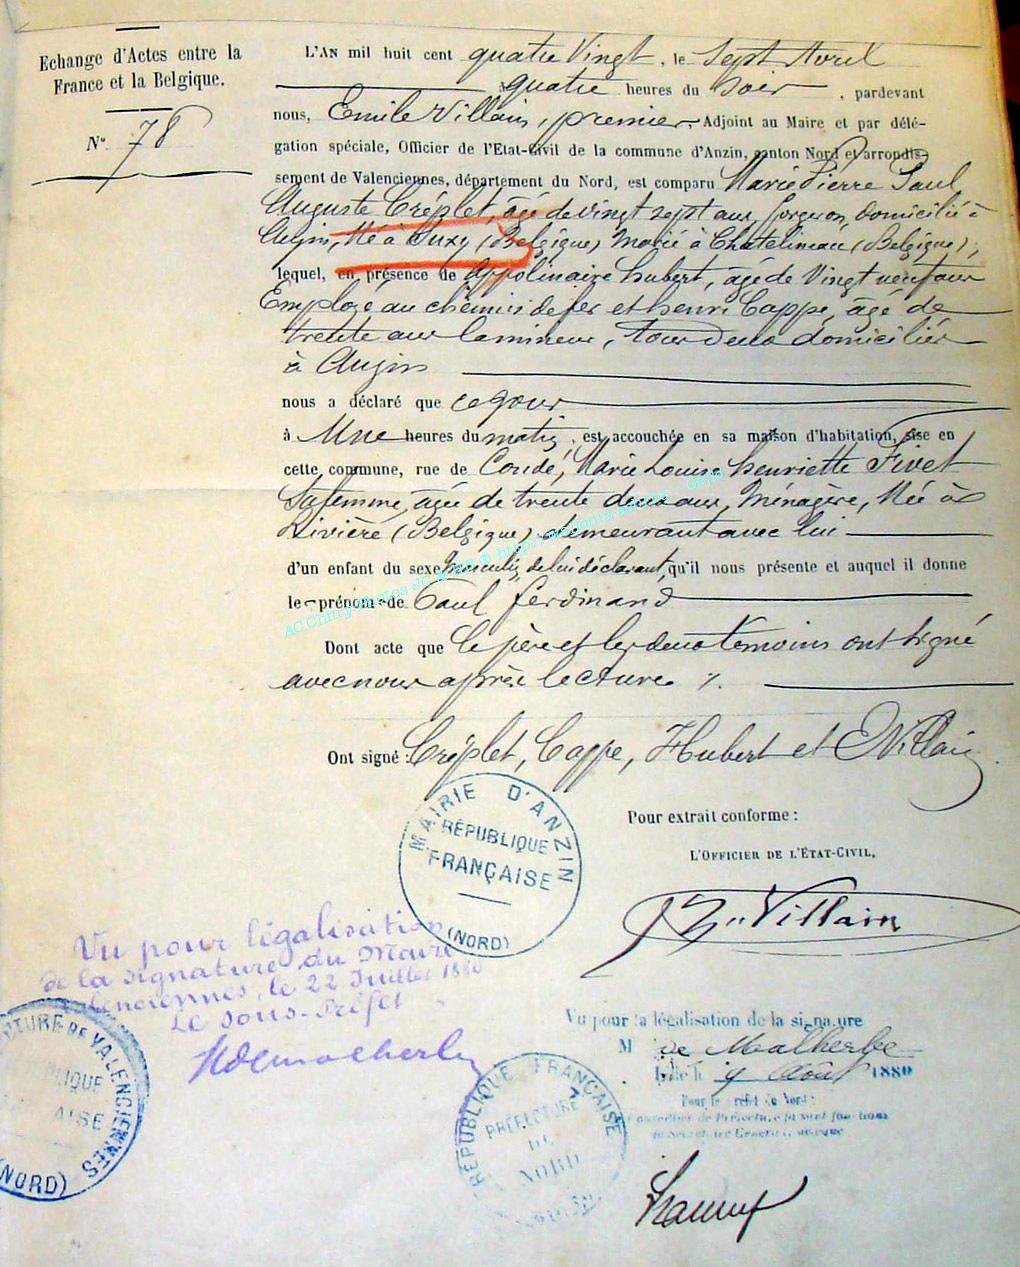 Echange d'Actes entre la
France et la Belgique.
N° 78
L'AN mil huit cent quatre Vingt, le Sept Avril
à quatre heures du soir, pardevant
nous, Emile Villain, premier Adjoint au Maire et par délé-
gation spéciale, Officier de l'Etat-Civil de la commune d'Anzin, canton Nord et arrondis-
sement de Valenciennes, département du Nord, est comparu Marie Pierre Paul
Auguste Créplet, âgé de vingt sept ans, forgeron, domicilié à
Anzin, Né à Suxy (Belgique) marié à Chatelineau (Belgique),
lequel, en présence de Appolinaire hubert, âgé de Vingt neuf ans
Employé au chemin de fer et henri Cappe, âgé de
trente ans lamineur, tous deux domiciliés
à Anzin
nous a déclaré que ce jour
à Une heures du matin, est accouchée en sa maison d'habitation, sise en
cette commune, rue de Condé, Marie Louise henriette Fivet
Sa femme, âgée de trente deux ans, Ménagère, Née à
Rivière (Belgique) demeurant avec lui
d'un enfant du sexe masculin, de lui déclarant, qu'il nous présente et auquel il donne
le prénom de Paul ferdinand
AC.Chiny photos JC
Dont acte que le père et les deux témoins ont signé
avec nous après lecture ./.
Ont signé: Créplet, Cappe, Hubert et E Villain
MAIRIE D'ANZIN
RÉPUBLIQUE
FRANÇAISE
(NORD)
Pour extrait conforme :
L'OFFICIER DE L'ÉTAT-CIVIL,
Villain
Vu pour légalisation
de la signature du Maire
lenciennes, le 22 Juillet 1880
Le Sous-Préfet
CTURE DE VALENCIENNES
BLIQUE
AISE
(NORD)
Vu pour la légalisation de la signature
M de Malherbe
Lille le 9 Août 1880
Pour le Préfet du Nord:
RÉPUBLIQUE FRANÇAISE
PRÉFECTURE
DU
NORD